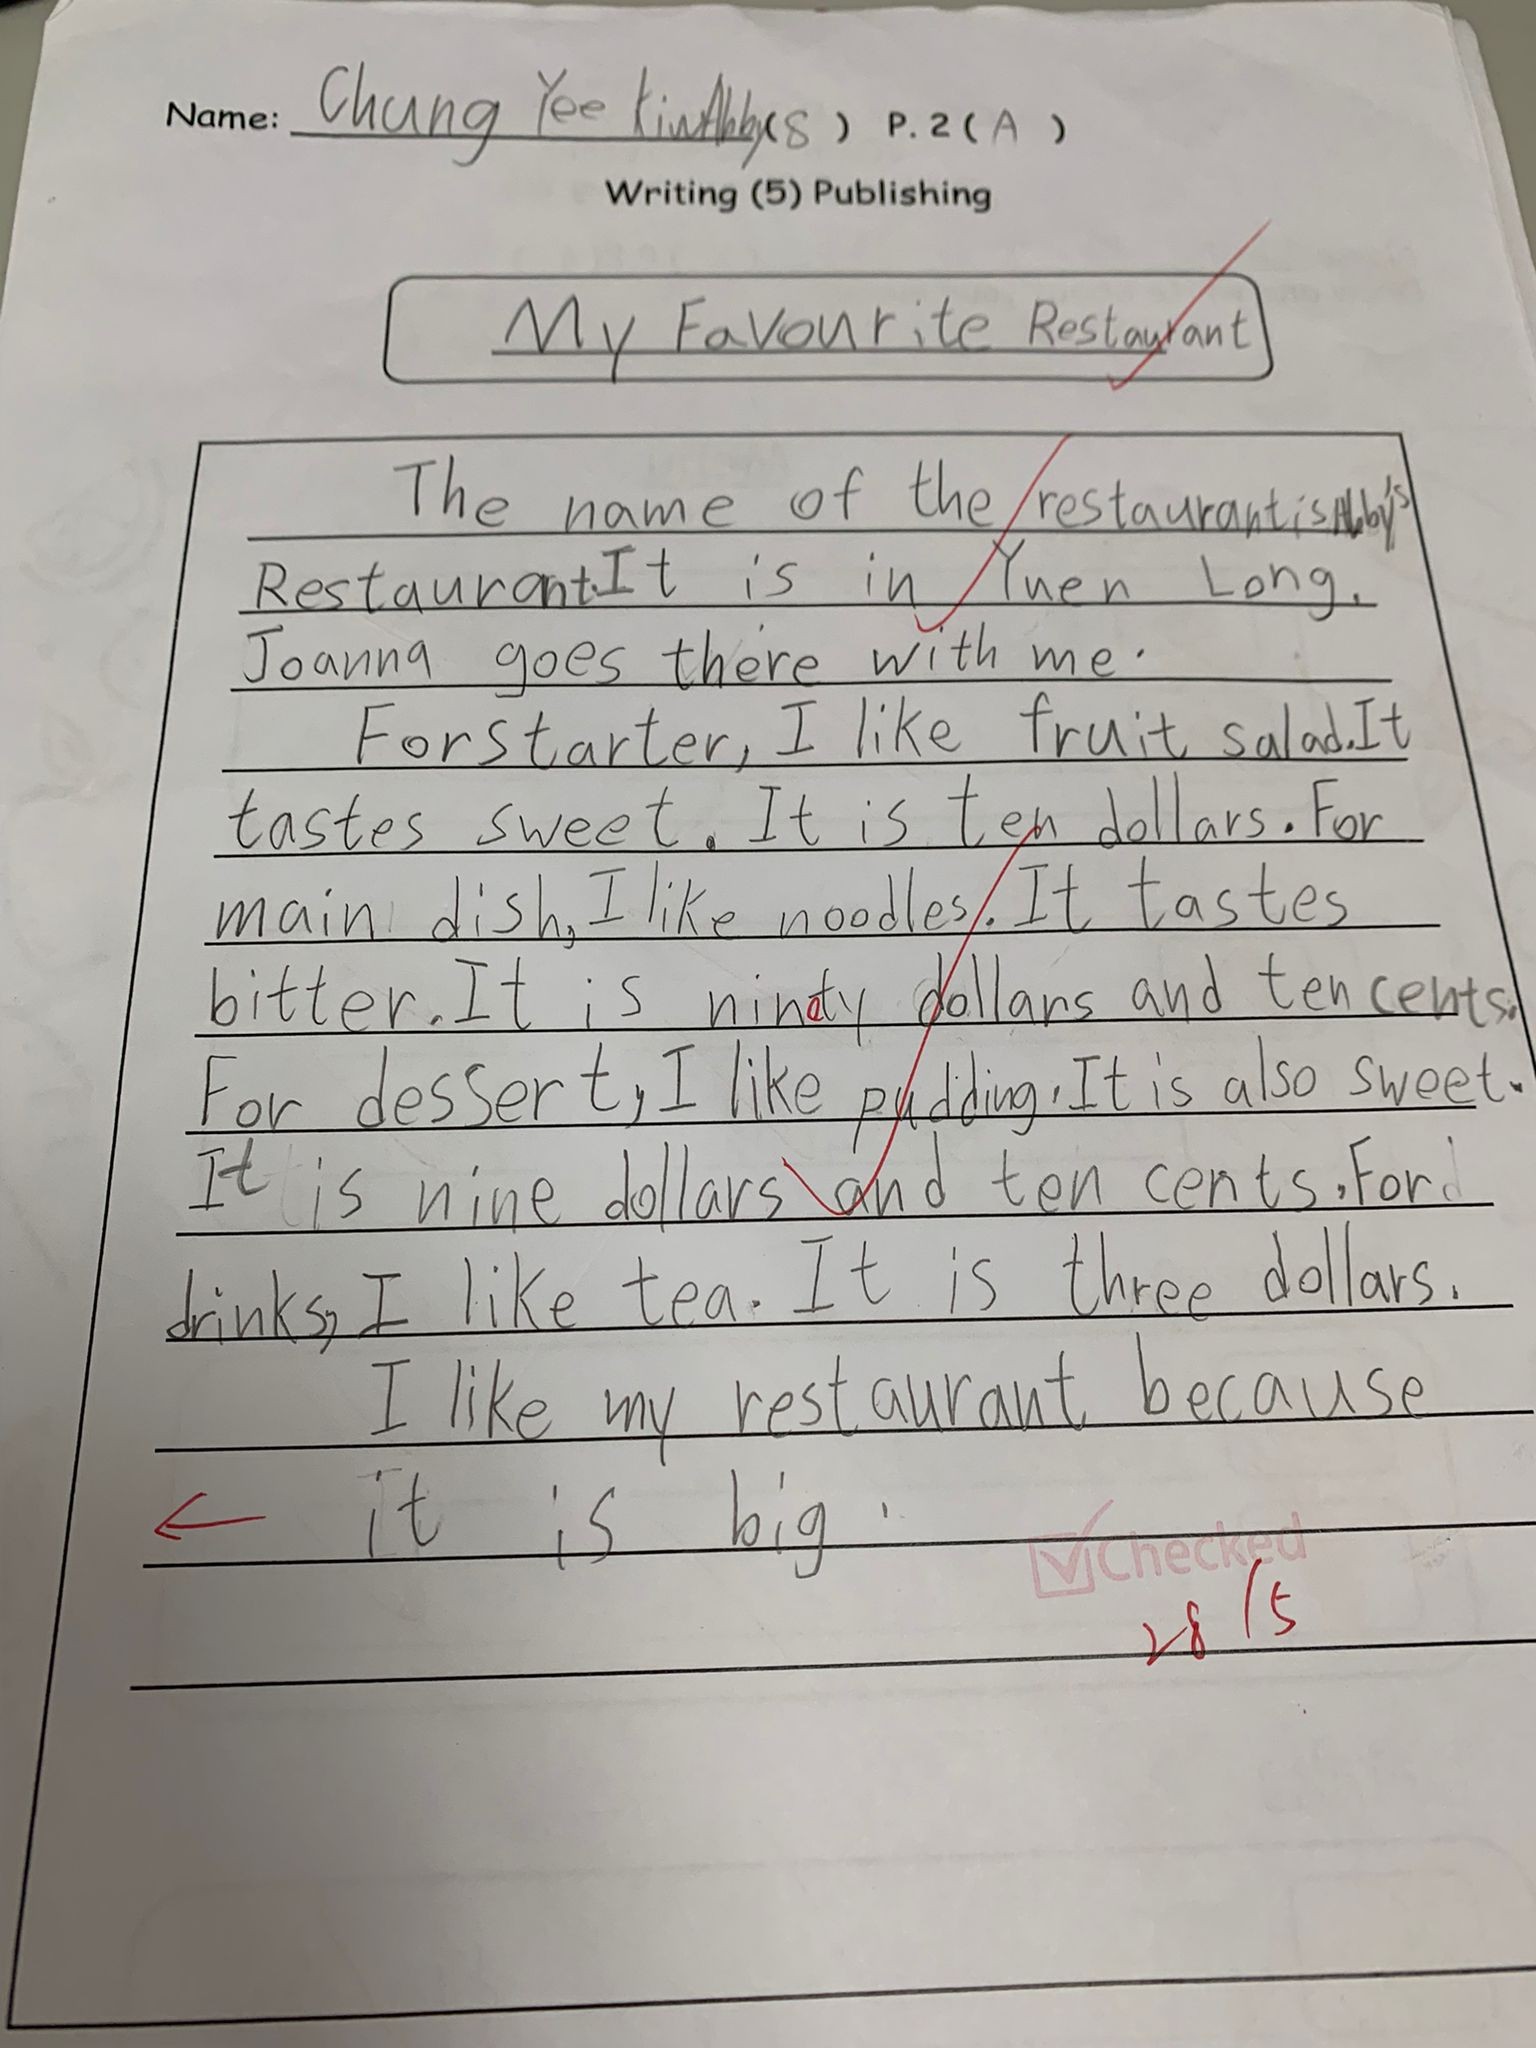 Name: Chung Yee Kiu Abby (8) P.2 (A)
Writing (5) Publishing
My Favourite Restaurant
The name of the restaurant is Abby's
Restaurant. It is in Yuen Long.
Joanna goes there with me.
For starter, I like fruit salad. It
tastes sweet. It is ten dollars. For
main dish, I like noodles. It tastes
bitter. It is ninety dollars and ten cents.
For dessert, I like pudding. It is also sweet.
It is nine dollars and ten cents. For
drinks, I like tea. It is three dollars.
I like my restaurant because
it is big.
Checked
28/5